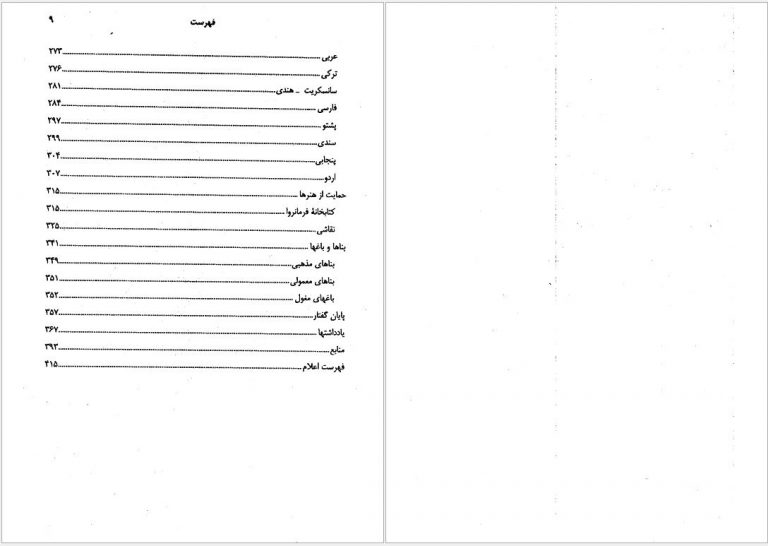 فهرست ۹
عربی ۲۷۳
ترکی ۲۷۶
سانسکریت - هندی ۲۸۱
فارسی ۲۸۴
پشتو ۲۹۷
سندی ۲۹۹
پنجابی ۳۰۴
اردو ۳۰۷
حمایت از هنرها ۳۱۵
کتابخانهٔ فرمانروا ۳۱۵
نقاشی ۳۲۵
بناها و باغها ۳۴۱
بناهای مذهبی ۳۴۹
بناهای معمولی ۳۵۱
باغهای مغول ۳۵۲
پایان گفتار ۳۵۷
یادداشتها ۳۶۷
منابع ۳۹۳
فهرست اعلام ۴۱۵